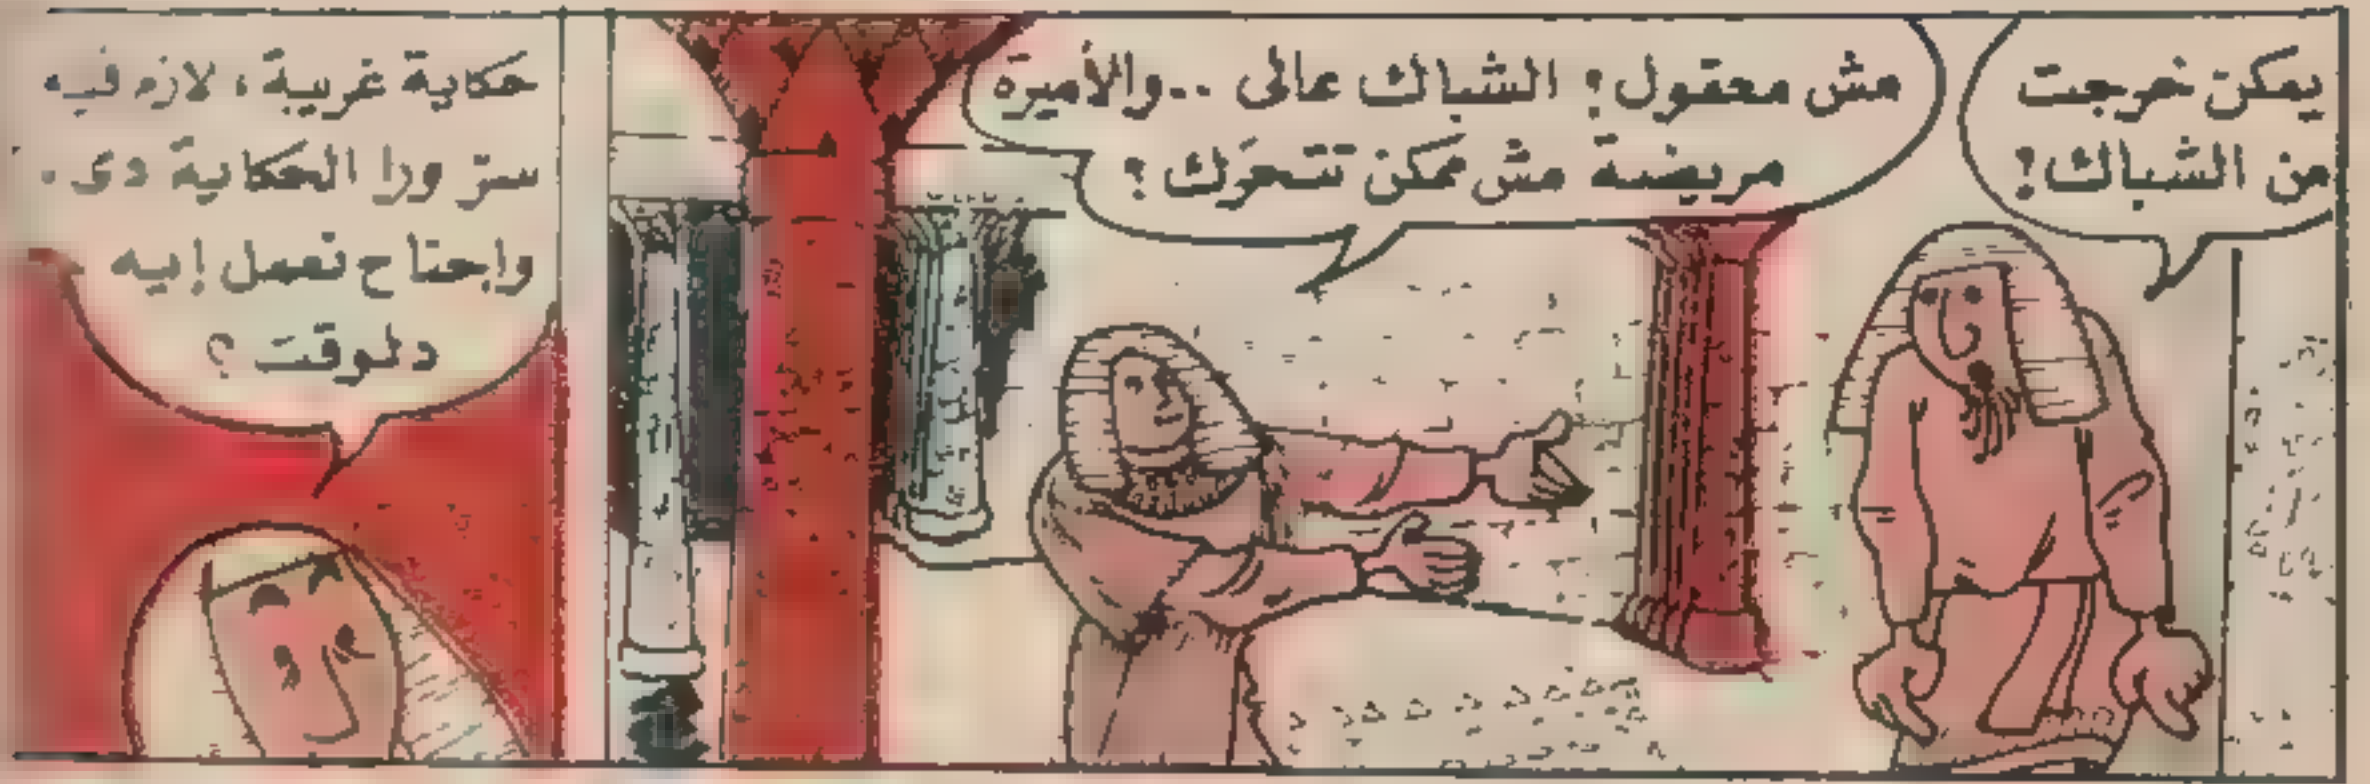 يمكن خرجت
من الشباك؟
مش معقول؟ الشباك عالى ..والأميرة
مريضة مش ممكن تتحرك؟
حكاية غريبة، لازم فيه
سرّ ورا الحكاية دى.
واحتاح نعمل إيه
دلوقت؟